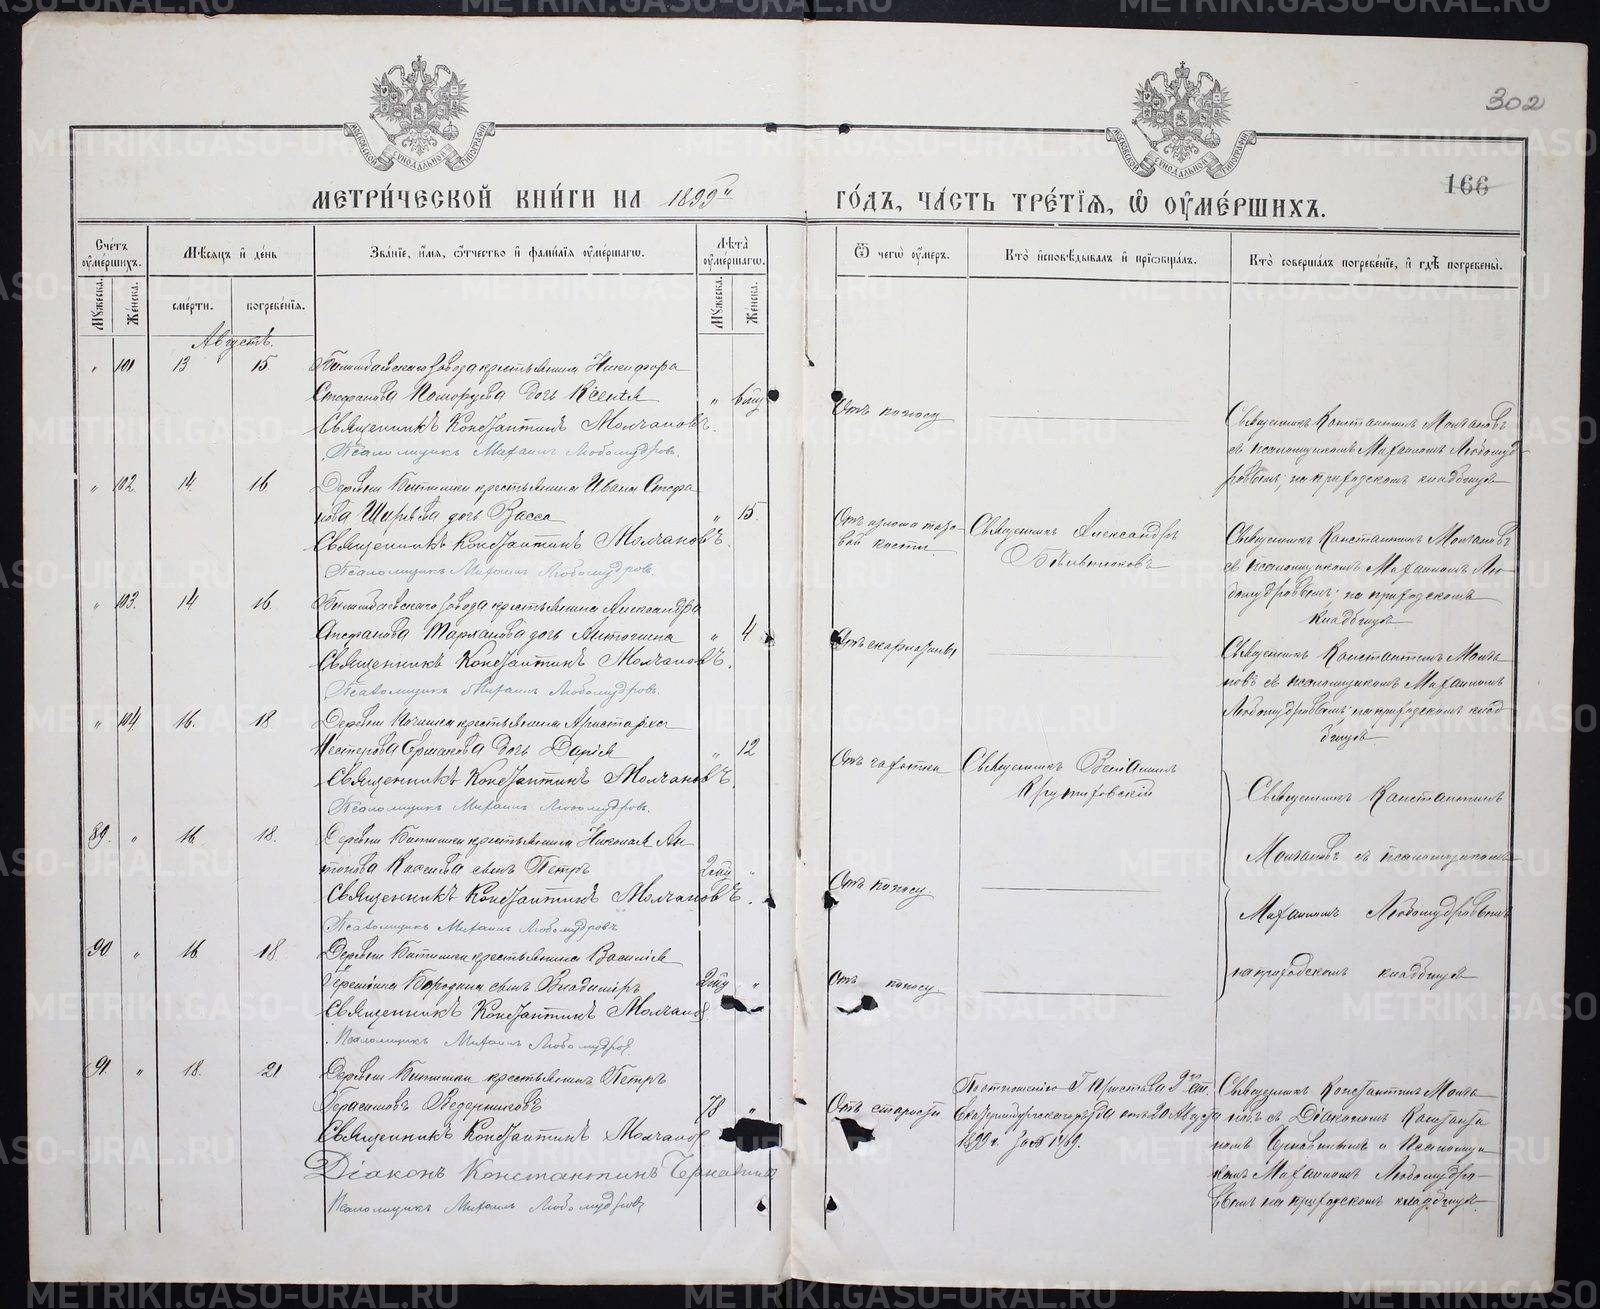 302
166
МЕТРИ́ЧЕСКОЙ КНИ́ГИ НА 1899й ГО́ДЪ, ЧА́СТЬ ТРЕ́ТІѦ, Ѡ҆ ОУ҆МЕ́РШИХЪ.
Сче́тъ оумершихъ.
Мѣсяцъ и день
Зва́ніе, и́мя, о́тчество и фами́лія оуме́ршагѡ.
Лѣта̀ оуме́ршагѡ.
Ѿ чегѡ̀ оу́меръ.
Кто̀ и́сповѣдывалъ и прїѡбща́лъ.
Кто̀ соверша́лъ погребе́ніе, и гдѣ̀ погребены̀.
Мꙋ́жеска.
Же́нска.
сме́рти.
погребе́нія.
Мꙋ́жеска.
Же́нска.
Августъ.
" 101 13 15.
Билимбаевскаго завода крестьянина Никифора
Стефанова Поморцева дочь Ксенія " 6 мц
Священникъ Константинъ Молчановъ.
Псаломщикъ Михаилъ Любомудровъ.
Отъ поносу
Священникъ Константинъ Молчановъ
съ псаломщикомъ Михаиломъ Любомуд-
ровымъ; на приходскомъ кладбищѣ
" 102 14. 16.
Деревни Битимки крестьянина Ивана Стефа
нова дочь Васса " 15.
Священникъ Константинъ Молчановъ.
Псаломщикъ Михаилъ Любомудровъ.
Отъ излома тазо-
вой кости
Священникъ Александръ
Священникъ Константинъ Молчановъ
съ псаломщикомъ Михаиломъ Лю-
бомудровымъ; на приходскомъ
кладбищѣ
" 103. 14 16.
Билимбаевскаго завода крестьянина Александра
Стефанова дочь Антонина " 4
Священникъ Константинъ Молчановъ.
Псаломщикъ Михаилъ Любомудровъ.
Отъ скарлатины
Священникъ Константинъ Молча
новъ съ псаломщикомъ Михаиломъ
Любомудровымъ; на приходскомъ клад
бищѣ
" 104. 16. 18.
Деревни крестьянина Аристарха
Нестерова Ермакова дочь Дарія " 12
Священникъ Константинъ Молчановъ.
Псаломщикъ Михаилъ Любомудровъ.
Отъ чахотки
Священникъ Веніаминъ
Священникъ Константинъ
Молчановъ съ псаломщикомъ
Михаиломъ Любомудровымъ
на приходскомъ кладбищѣ
89. " 16. 18.
Деревни Битимки крестьянина Николая Ан
тонова сынъ Петръ 2 мц "
Священникъ Константинъ Молчановъ.
Псаломщикъ Михаилъ Любомудровъ
Отъ поносу.
90. " 16. 18
Деревни Битимки крестьянина Василія
Бородина сынъ Владиміръ 2 мц "
Священникъ Константинъ Молчанов
Псаломщикъ Михаилъ Любомудров
Отъ поносу.
91. " 18. 21
Деревни Битимки крестьянинъ Петръ
Герасимовъ Ведерниковъ 78 "
Священникъ Константинъ Молчанов
Діаконъ Константинъ
Псаломщикъ Михаилъ Любомудровъ
Отъ старости
По отношенію Г. Пристава 2го ст.
Екатеринбургскаго уѣзда отъ 20 Августа
1899 г. за № 1469.
Священникъ Константинъ Молча
новъ съ Діакономъ Константи
номъ и Псаломщи
комъ Михаиломъ Любомудро-
вымъ на приходскомъ кладбищѣ.